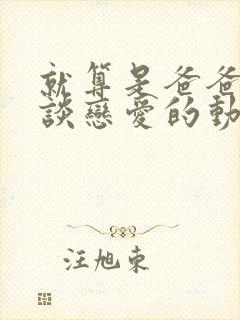 就算是爸爸
談戀愛的動
汪旭東